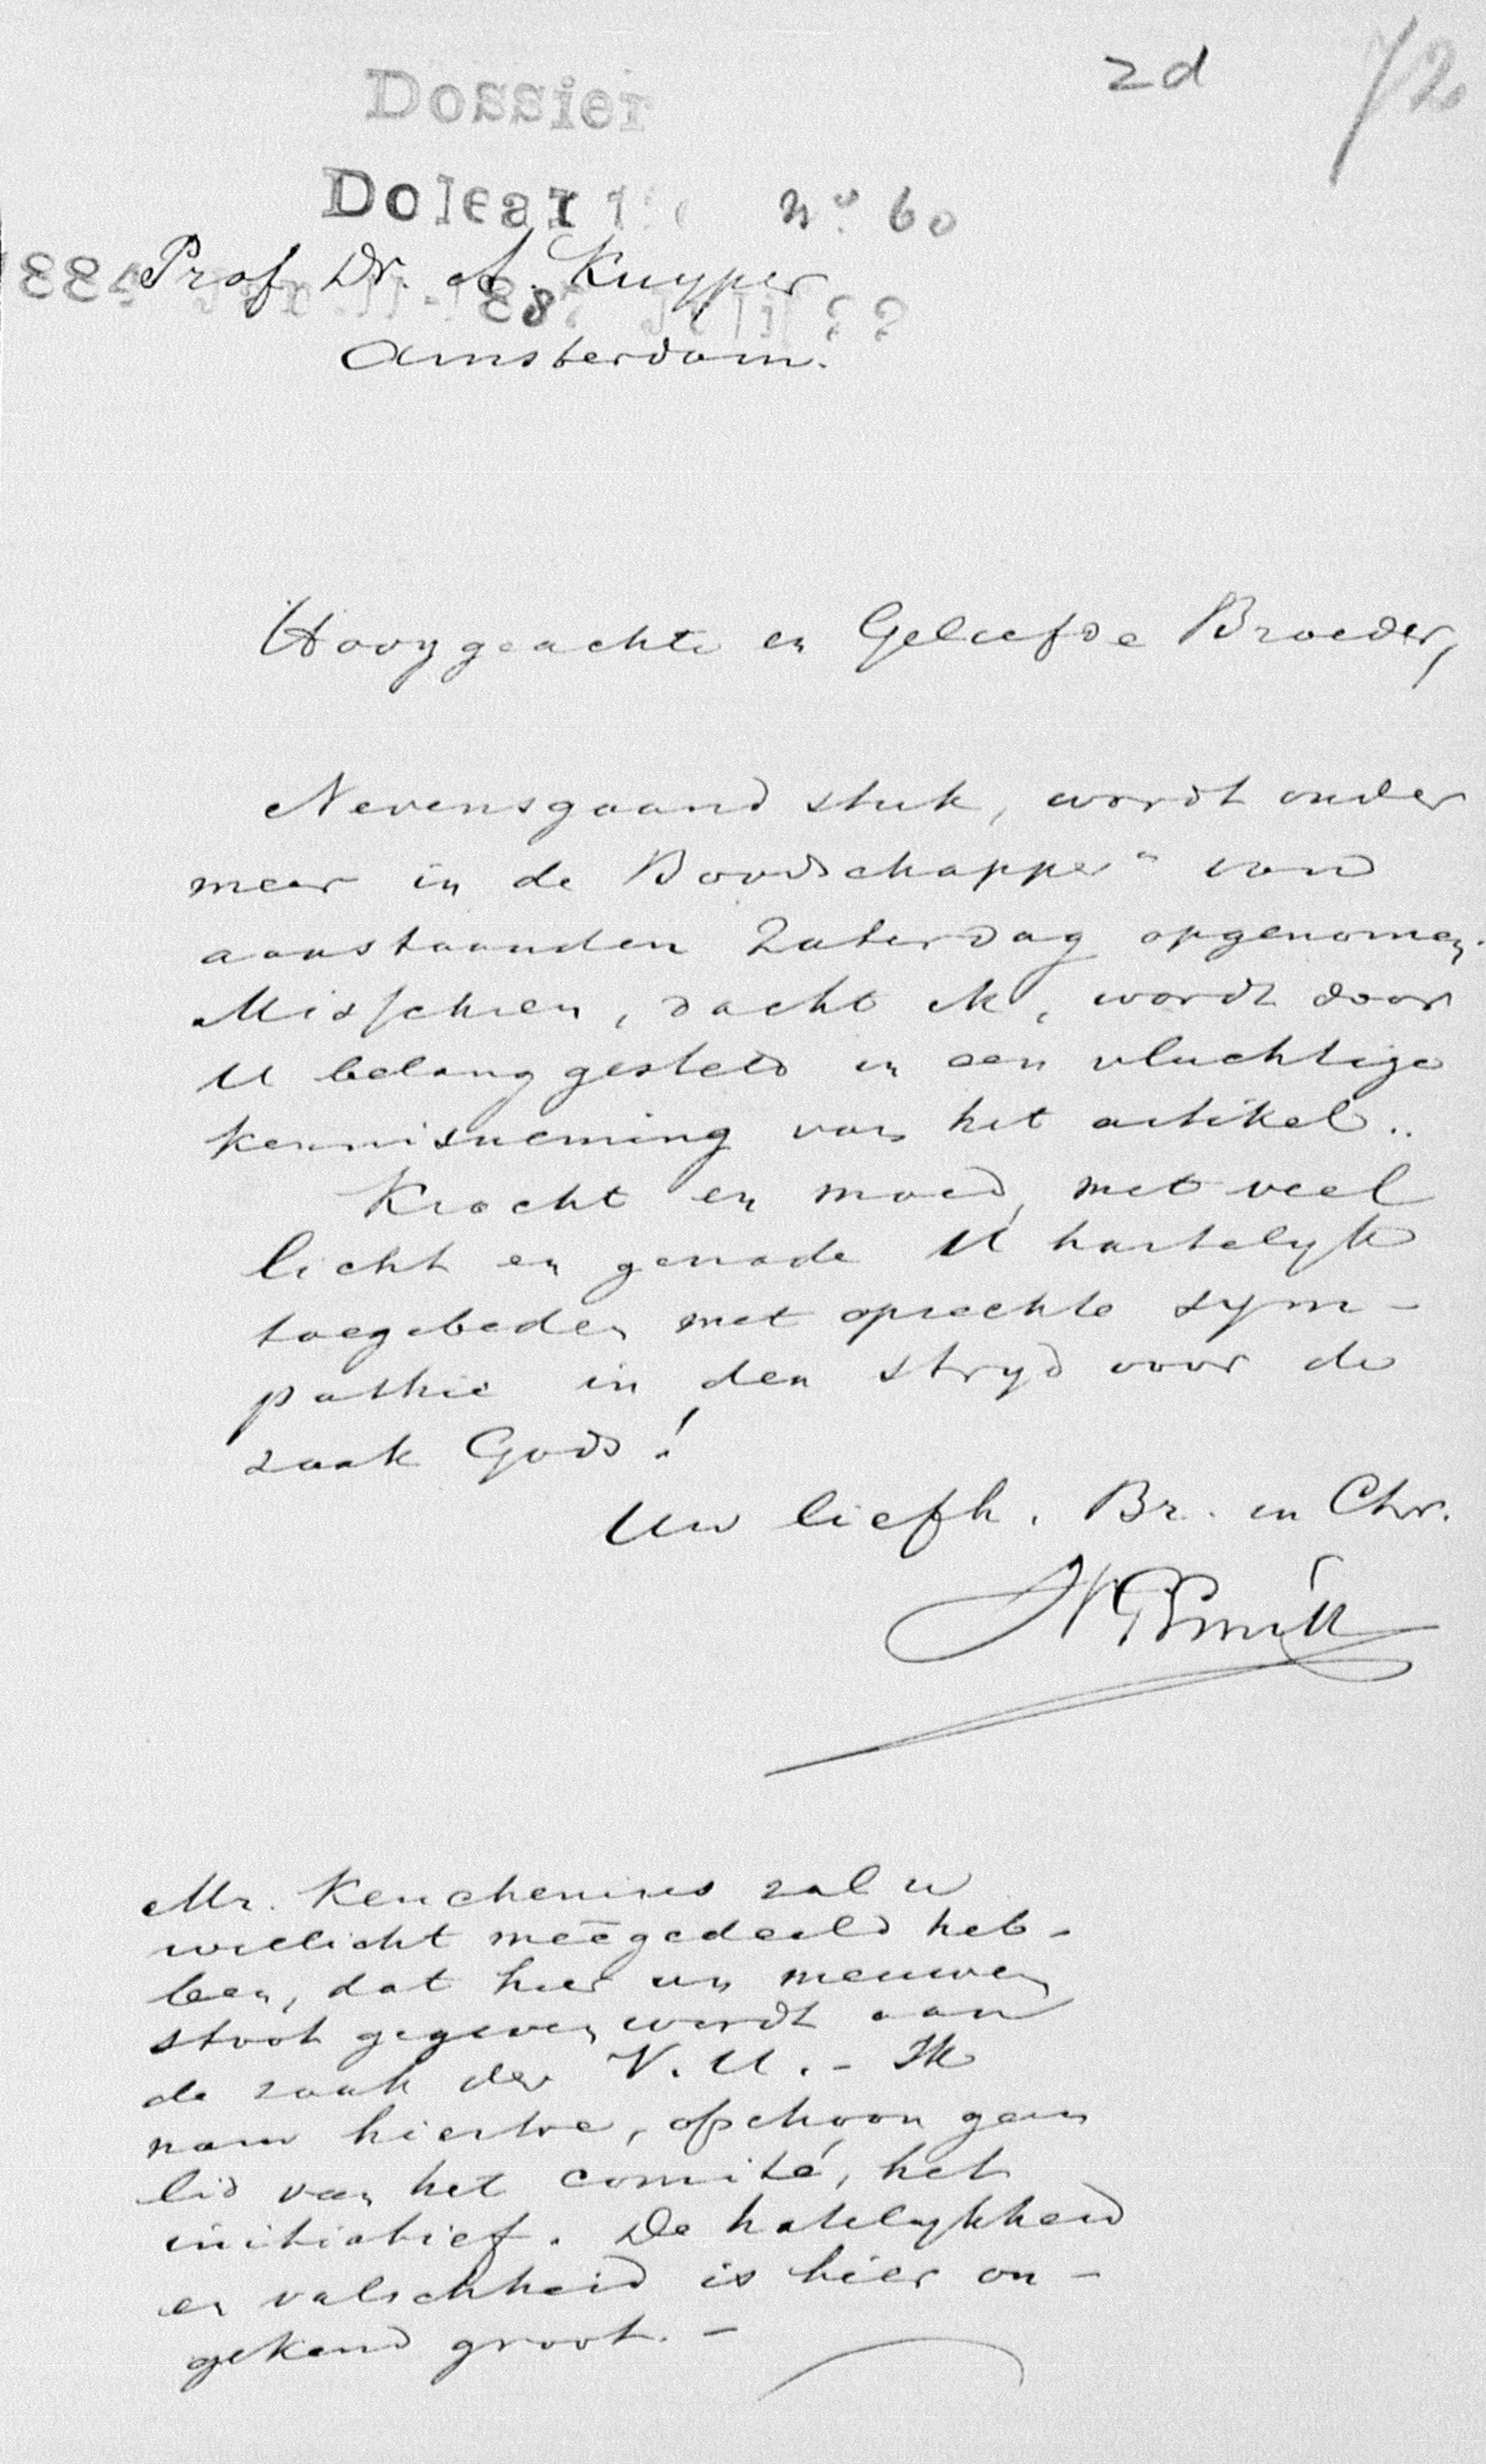 2d
72
Dossier
Dolear
No. 60
Prof. Dr. A. Kuyper
Amsterdam.
Hooggeachte en Geliefde Broeder,
Nevensgaand stuk, wordt onder
meer in de Boodschapper" van
aanstaanden Zaterdag opgenomen.
Misschien, dacht ik, wordt door
U belanggesteld in een vluchtige
kennisneming van het artikel..
Kracht en moed, met veel
licht en genade U hartelyk
toegebeden met oprechte sym-
pathie in den stryd voor de
zaak Gods!
Uw liefh. Br. in Chr.
Smitt
Mr. Keuchenius zal u
wellicht meêgedeeld heb-
ben, dat hier een nieuwen
stoot gegeven wordt aan
de zaak der V. U. - Ik
nam hiertoe, ofschoon geen
lid van het comité, het
initiatief. De hatelykheid
en valschheid is hier on-
gekend groot. -